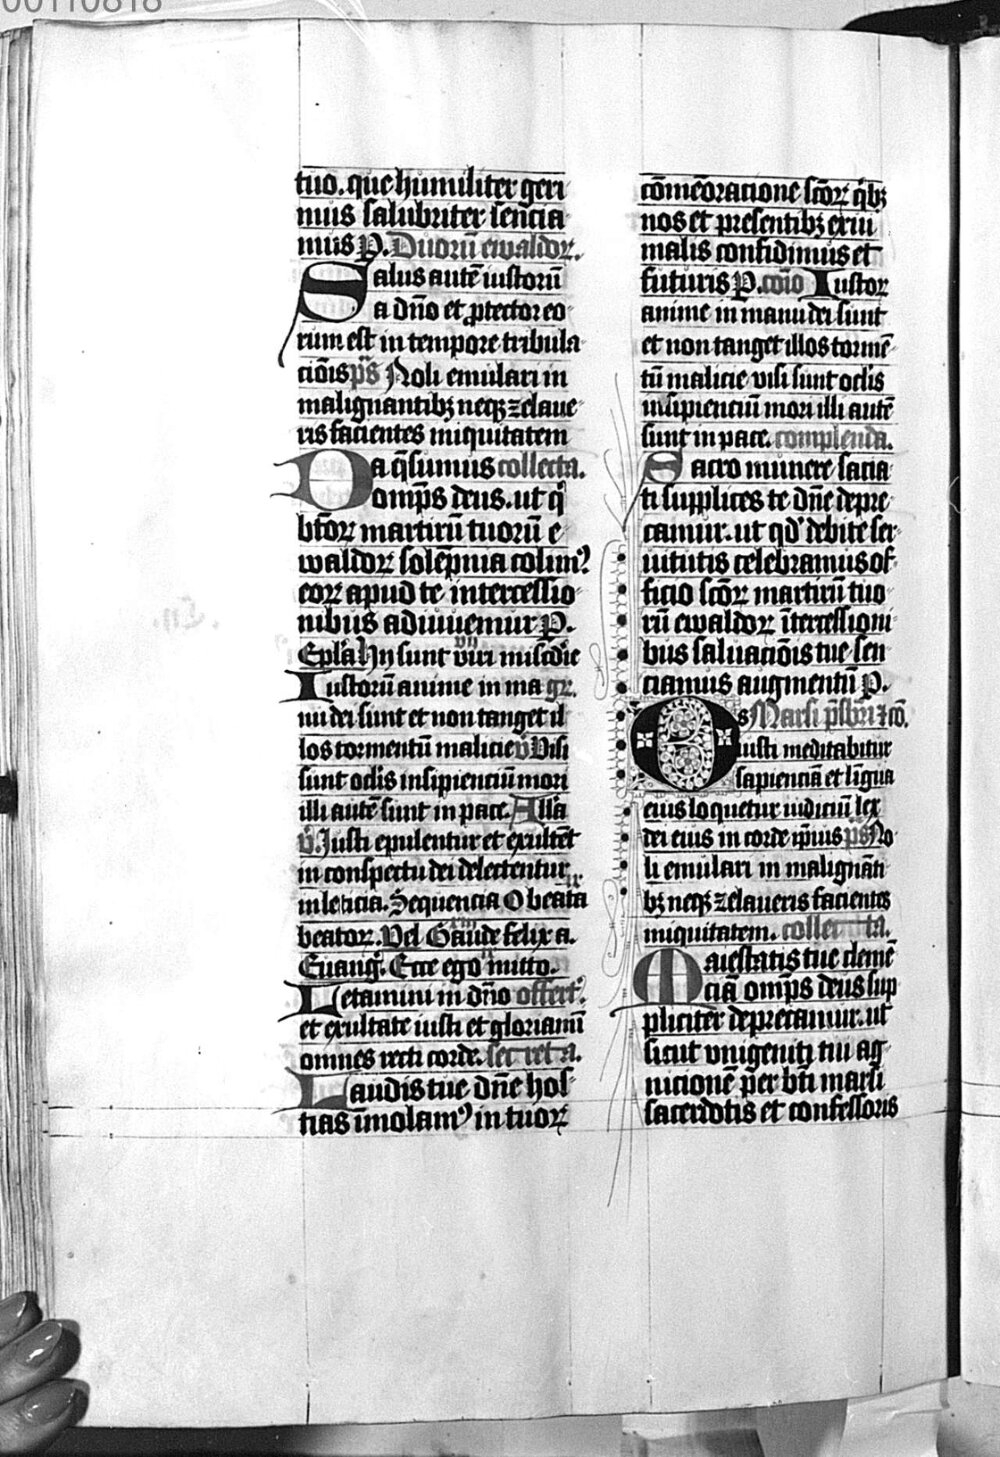 00110818
tuo. que humiliter geri
mus salubriter sencia
mus P. Duorū ewaldoꝝ.
Salus autē iustorū
a dn̄o et ꝓtector eo
rum est in tempore tribula
ciōis ps̄ Noli emulari in
malignantibꝫ neqꝫ zelaue
ris facientes iniquitatem
Da q̄sumus collecta.
omp̄s deus. ut qͥ
bt̄oꝝ martirū tuorū e
waldoꝝ solēpnia colimꝰ
eoꝝ apud te intercessio
nibus adiuuemur P.
Ep̄la Hij sunt viri misc̄die
Iustorū anime in ma gr̄.
nu dei sunt et non tanget il
los tormentū malicie v̄ Visi
sunt oc̄lis insipienciū mori
illi autē sunt in pace. All̄a
v̄. Iusti epulentur et exultēt
in conspectu dei delectentur
in leticia. Sequencia O beata
beatoꝝ. Vel Gaude felix a.
Euang̅. Ecce ego mitto.
Letamini in dn̄o offert̄.
et exultate iusti et gloriamī
omnes recti corde. secreta.
Laudis tue dn̄e hos
tias īmolamꝰ in tuoꝝ
cōmēoracione sc̄oꝝ qͥbꝫ
nos et presentibꝫ exui
malis confidimus et
futuris P. cōio Iustoꝝ
anime in manu dei sunt
et non tanget illos tormē
tū malicie visi sunt oc̄lis
insipienciū mori illi autē
sunt in pace. complenda.
Sacro munere sacia
ti supplices te dn̄e depre
camur. ut qd̓ debite ser
uitutis celebramus of
ficio sc̄oꝝ martirū tuo
rū ewaldoꝝ ītercessioni
bus saluaciōis tue sen
ciamus augmentū P.
Os Marsi p̄sbri ⁊ cō.
iusti meditabitur
sapienciā et līgua
eius loquetur iudiciū lex
dei eius in corde ip̄ius ps̄ No
li emulari in malignāti
bꝫ neqꝫ zelaueris facientes
iniquitatem. collecta.
Maiestatis tue clemē
ciā omp̄s deus sup
pliciter deprecamur. ut
sicut vnigeniti tui ag
nicionē per bt̄i marsi
sacerdotis et confessoris